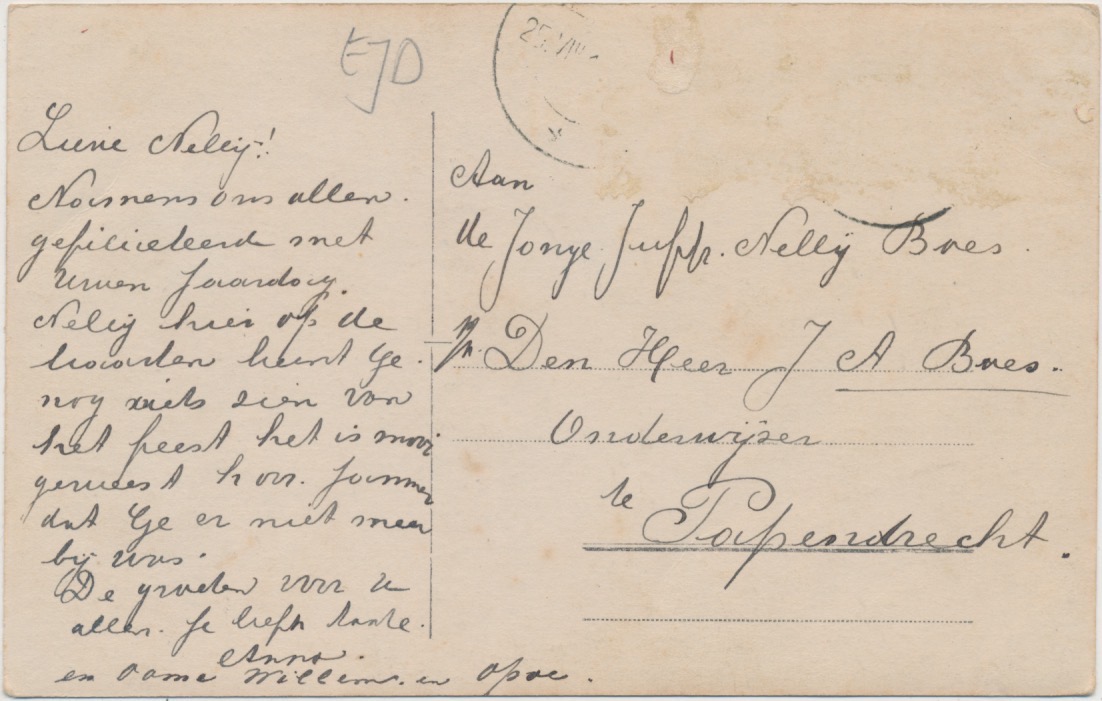 EJD
25 VIII
Lieve Nellij!
Namens ons allen.
gefilicieteerd met
Uwen Jaardag.
Nellij hier op de
kaarten kunt Ge.
nog niets zien van
het feest het is mooi
geweest hoor. Jammer
dat Ge er niet meer
bij was.
De groeten voor u
allen. Je liefh tante.
Anna.
en oome Willem. en Opoe.
Aan
de Jonge Juffr. Nellij Boes.
p/a. Den Heer J A Boes.
Onderwijzer
te
Papendrecht.